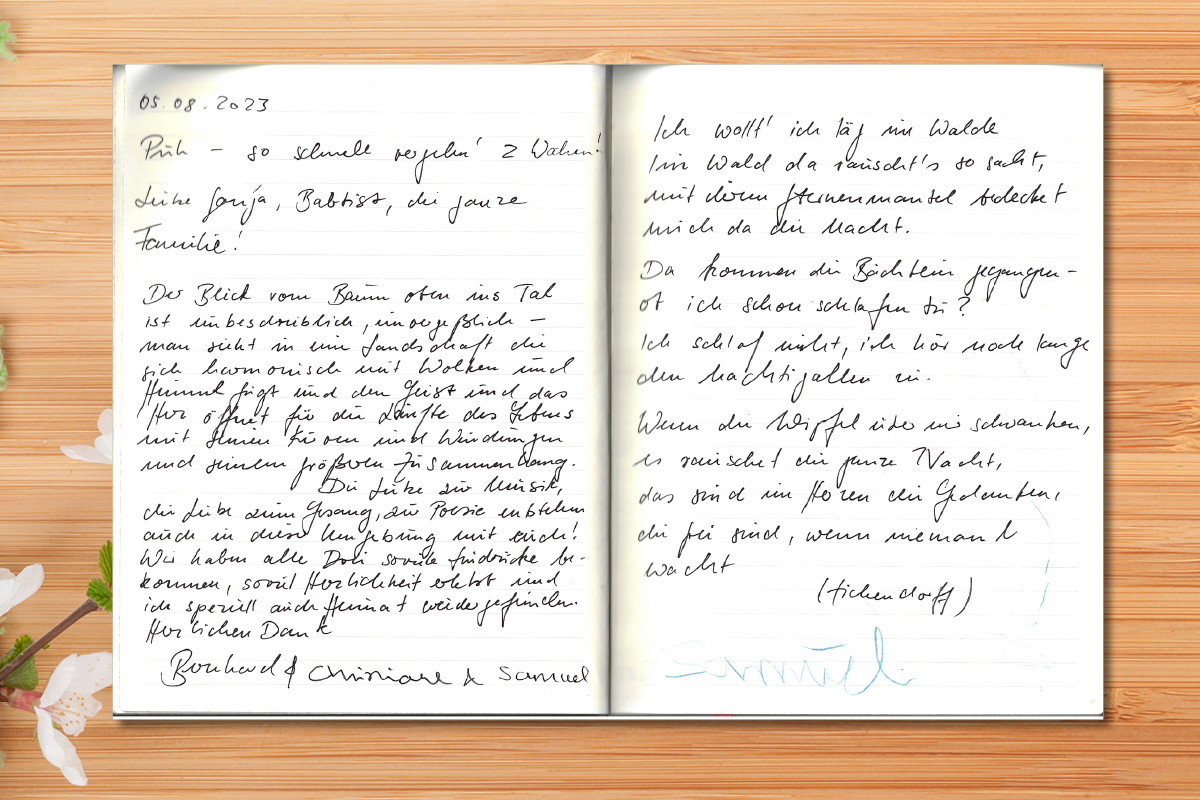 05.08.2023
Püh – so schnell vergeh'n 2 Wochen!
Liebe Sonja, Babtist, die ganze
Familie!
Der Blick vom Baum oben ins Tal
ist unbeschreiblich, unvergeßlich –
man sieht in eine Landschaft die
sich harmonisch mit Wolken und
Himmel fügt und den Geist und das
Herz öffnet für die Läufte des Lebens
mit seinen Kurven und Windungen
und seinem größeren Zusammenhang.
Die Liebe zur Musik,
die Liebe zum Gesang, zur Poesie entstehen
auch in dieser Umgebung mit euch!
Wir haben alle Drei soviele Eindrücke be-
kommen, soviel Herzlichkeit erlebt und
ich speziell auch Heimat wiedergefunden.
Herzlichen Dank
Bernhard & Christiane & Samuel
Ich wollt' ich läg im Walde
Im Wald da rauscht's so sacht,
mit deren Sternenmantel bedecket
mich da die Nacht.
Da kommen die Bächlein gegangen –
ob ich schon schlafen tu?
Ich schlaf nicht, ich hör noch lange
den Nachtigallen zu.
Wenn die Wipfel über mir schwanken,
es rauschet die ganze Nacht,
das sind im Herzen die Gedanken,
die frei sind, wenn niemand
wacht
(Eichendorff)
Samuel